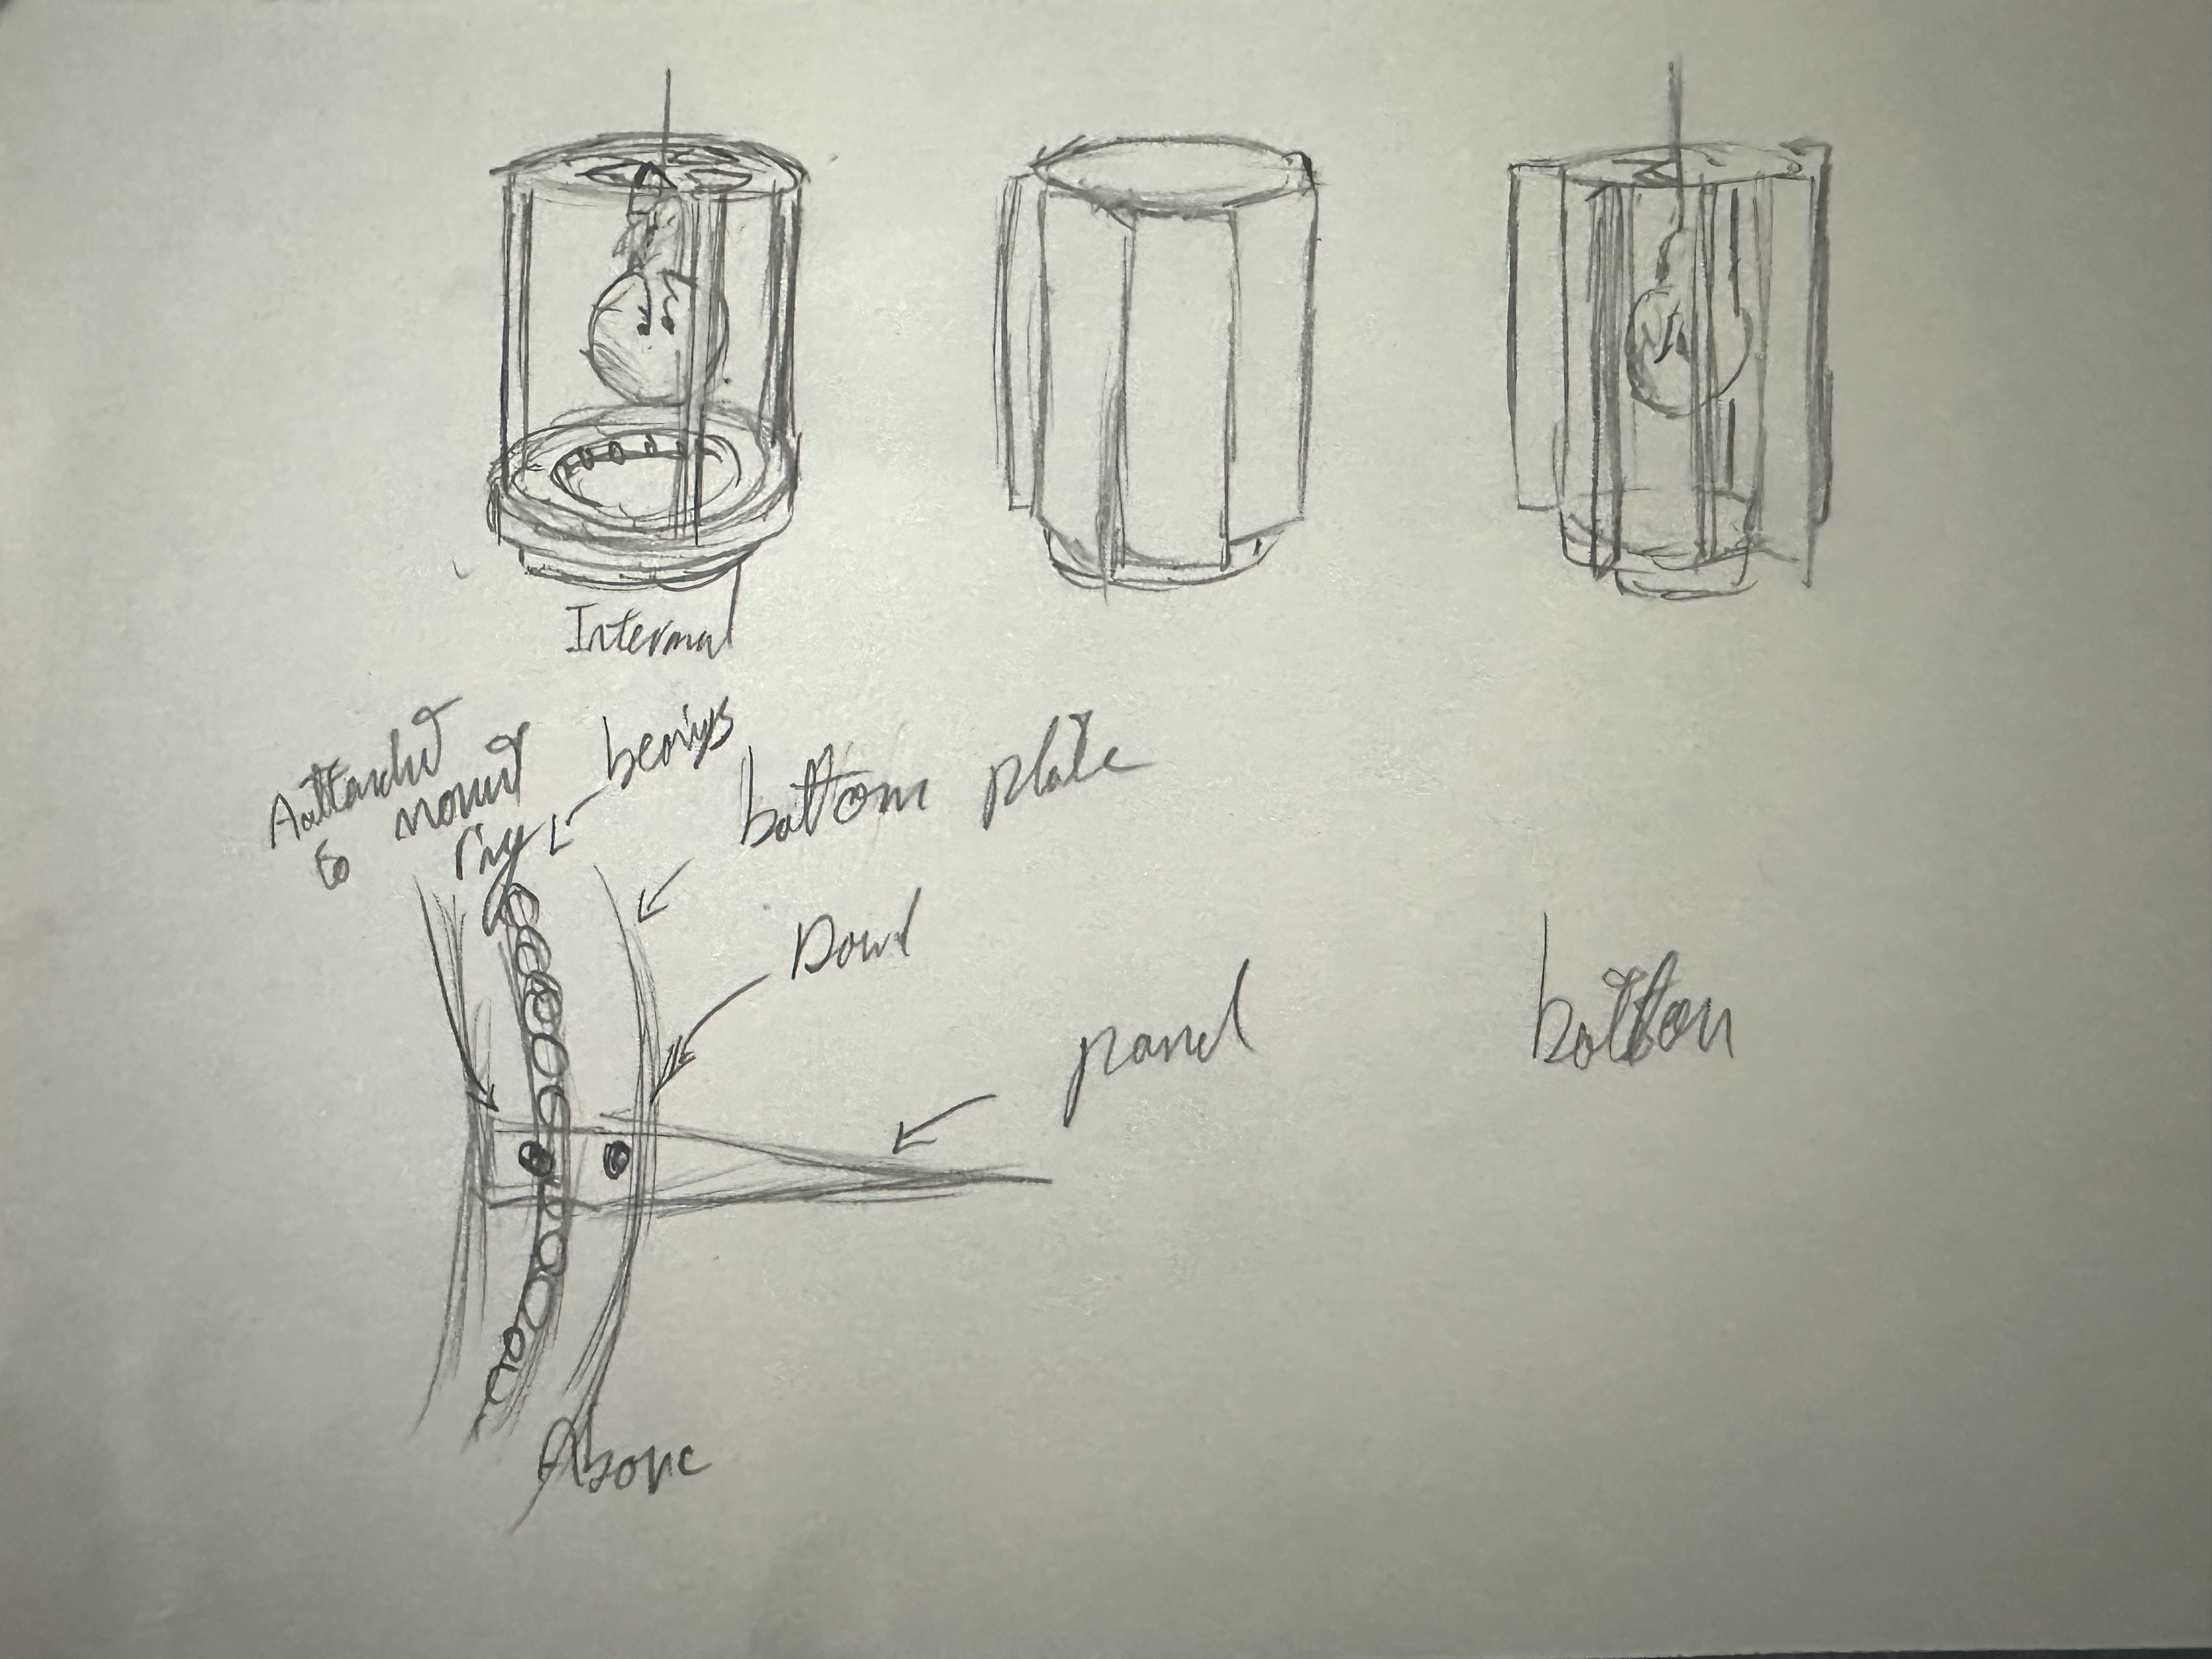 Internal
Aattached
to mount
ring
bearings
bottom plate
Dowel
panel
bottom
Above